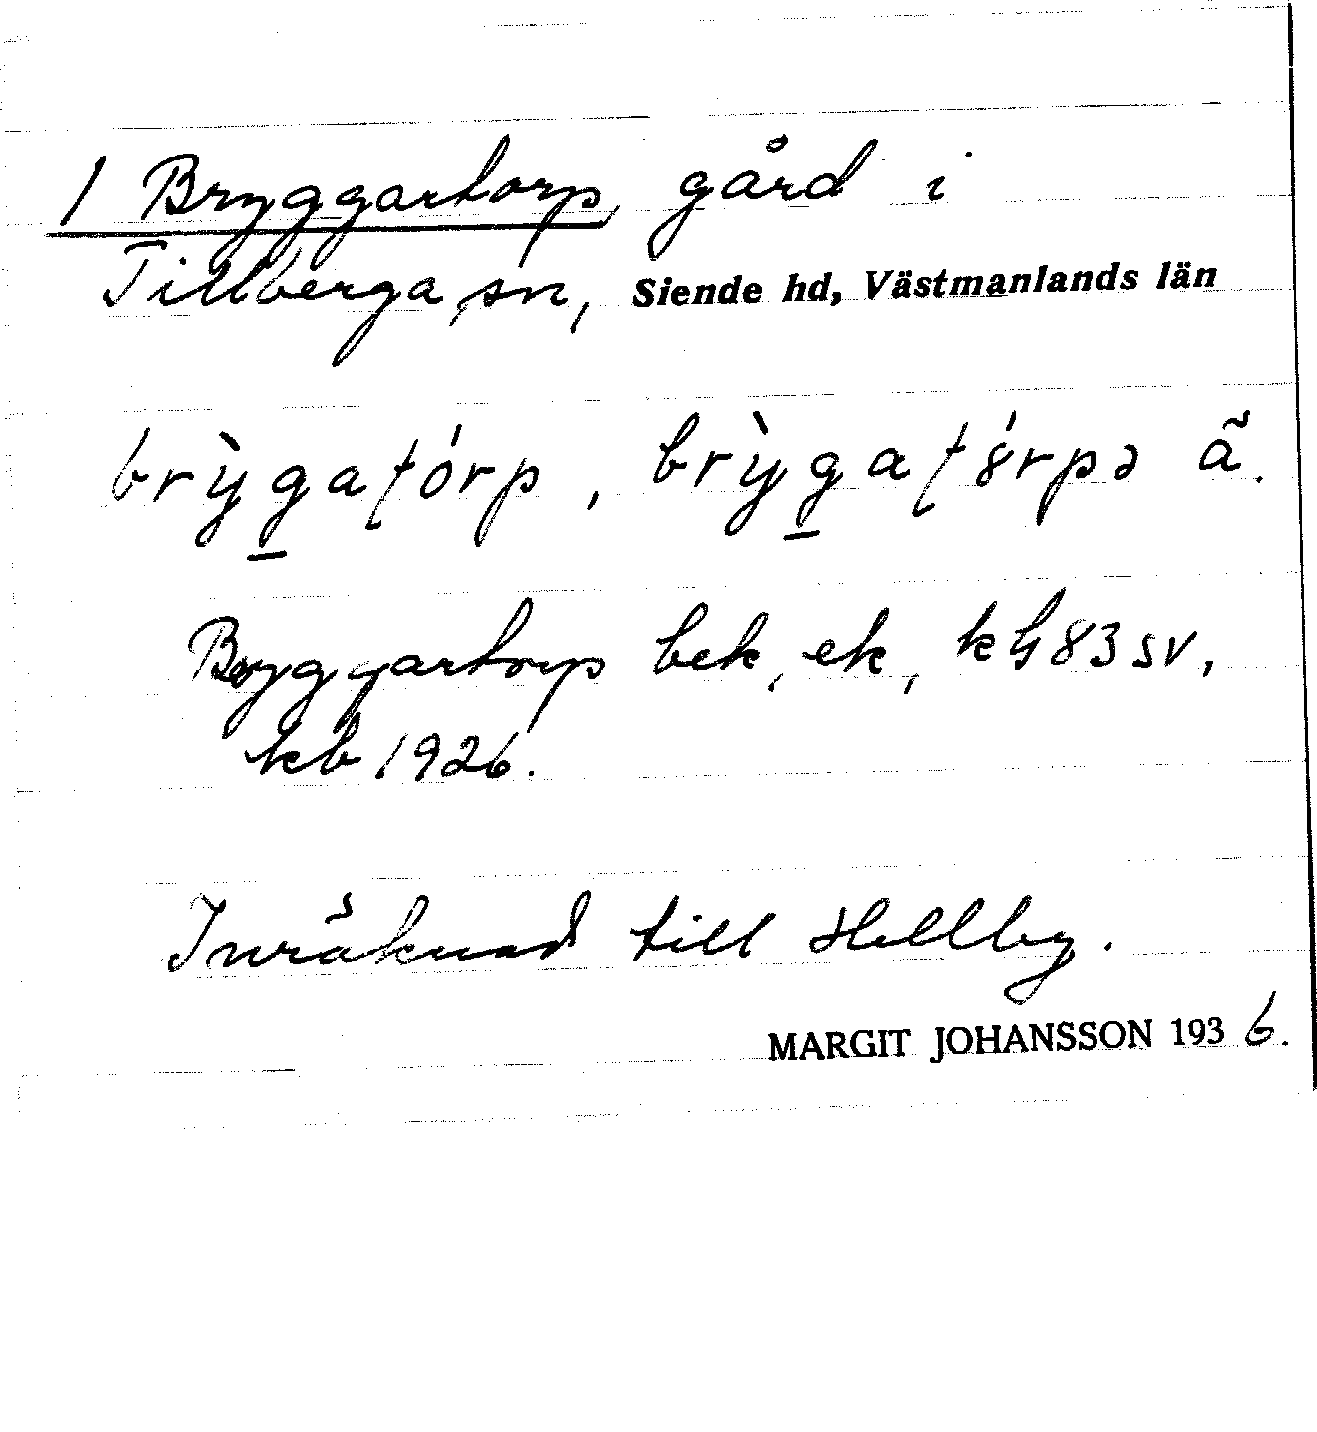 1 Bryggartorp, gård i
Tillberga sn, Siende hd, Västmanlands län
brỳgaʈórp, brỳgaʈ8́rpə ã.
Bryggartorp bek, ek, kh 83 sv,
kb 1926.
Inräknad till Hellby.
MARGIT JOHANSSON 1936.